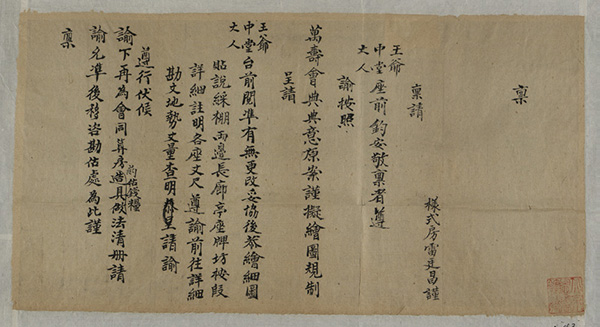 稟
樣式房雷廷昌謹
稟請
王爺
中堂座前鈞安敬稟者遵
大人
諭按照
萬壽會典典意原案謹擬繪圖規制
呈請
王爺
中堂台前閱準有無更改妥協後恭繪細圖
大人
貼說綵棚兩邊長廊亭座牌坊按段
詳細註明各座丈尺遵諭前往詳細
勘丈地勢丈量查明呈請諭
遵行伏候
諭下再為會同算房造具做法清册請
前估錢糧
諭允準後移咨勘估處為此謹
稟